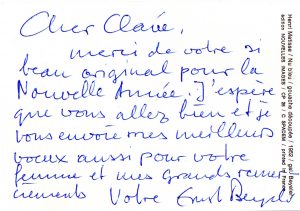 Cher Claude,
merci de votre si
beau original pour la
Nouvelle Année. J'espère
que vous allez bien et je
vous envoie mes meilleurs
voeux aussi pour votre
femme et mes grands remer-
ciements Votre Ernst Beyeler
Henri Matisse / Nu bleu / gouache découpée / 1952 / gal. Beyeler
édition NOUVELLES IMAGES / CP 38 / © SPADEM / printed in France